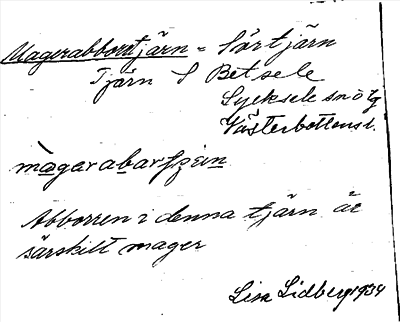 Magerabborrtjärn = Sörtjärn
Tjärn S Betsele
Lycksele sn ö tg
Västerbottens l.
mágarabarʃɛɛn
Abborren i denna tjärn är
särskilt mager
Lisa Lidberg 1934